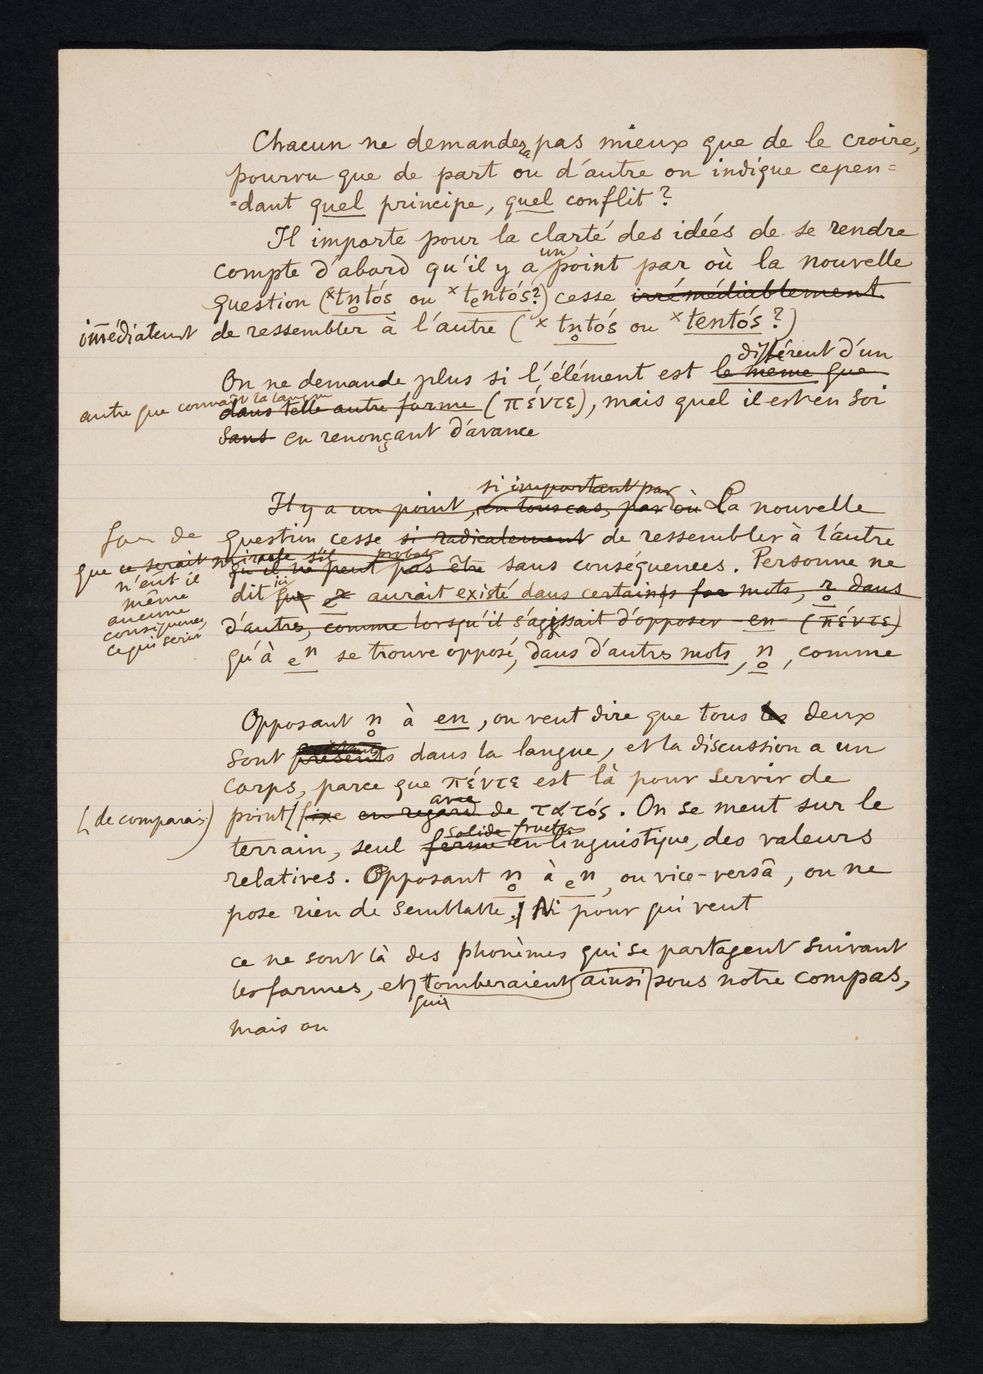 Chacun ne demandera pas mieux que de le croire,
pourvu que de part ou d'autre on indique cepen=
=dant quel principe, quel conflit ?
Il importe pour la clarté des idées de se rendre
compte d'abord qu'il y a un point par où la nouvelle
question (*tn̥tós ou *tₑntós?) cesse irrémédiablement
immédiatement de ressembler à l'autre (*tn̥tós ou *tentós ?)
différent d'un
On ne demande plus si l'élément est le même que
autre que connaît la langue
dans telle autre forme (πέντε), mais quel il est en soi
sans en renonçant d'avance
si important par
Il y a un point, en tous cas, par où La nouvelle
question cesse si radicalement de ressembler à l'autre
que ce serait miracle s'il
n'eût il
même
aucune
conséquence,
ce qui serait
qu'il ne peut pas être sans conséquences. Personne ne
dit ici que aurait existé dans certains mots, n̥ dans
d'autres, comme lorsqu'il s'agissait d'opposer en (πέντε)
qu'à ₑn se trouve opposé, dans d'autres mots, n̥, comme
Opposant n̥ à en, on veut dire que tous les deux
sont présents dans la langue, et la discussion a un
corps, parce que πέντε est là pour servir de
(de comparais.) point fixe en regard avec de τατός. On se meut sur le
solide
terrain, seul ferme en linguistique, des valeurs
relatives. Opposant n̥ à ₑn, ou vice-versâ, on ne
pose rien de semblable. Ni pour qui veut
ce ne sont là des phonèmes qui se partagent suivant
les formes, et tomberaient ainsi sous notre compas,
qui
mais on